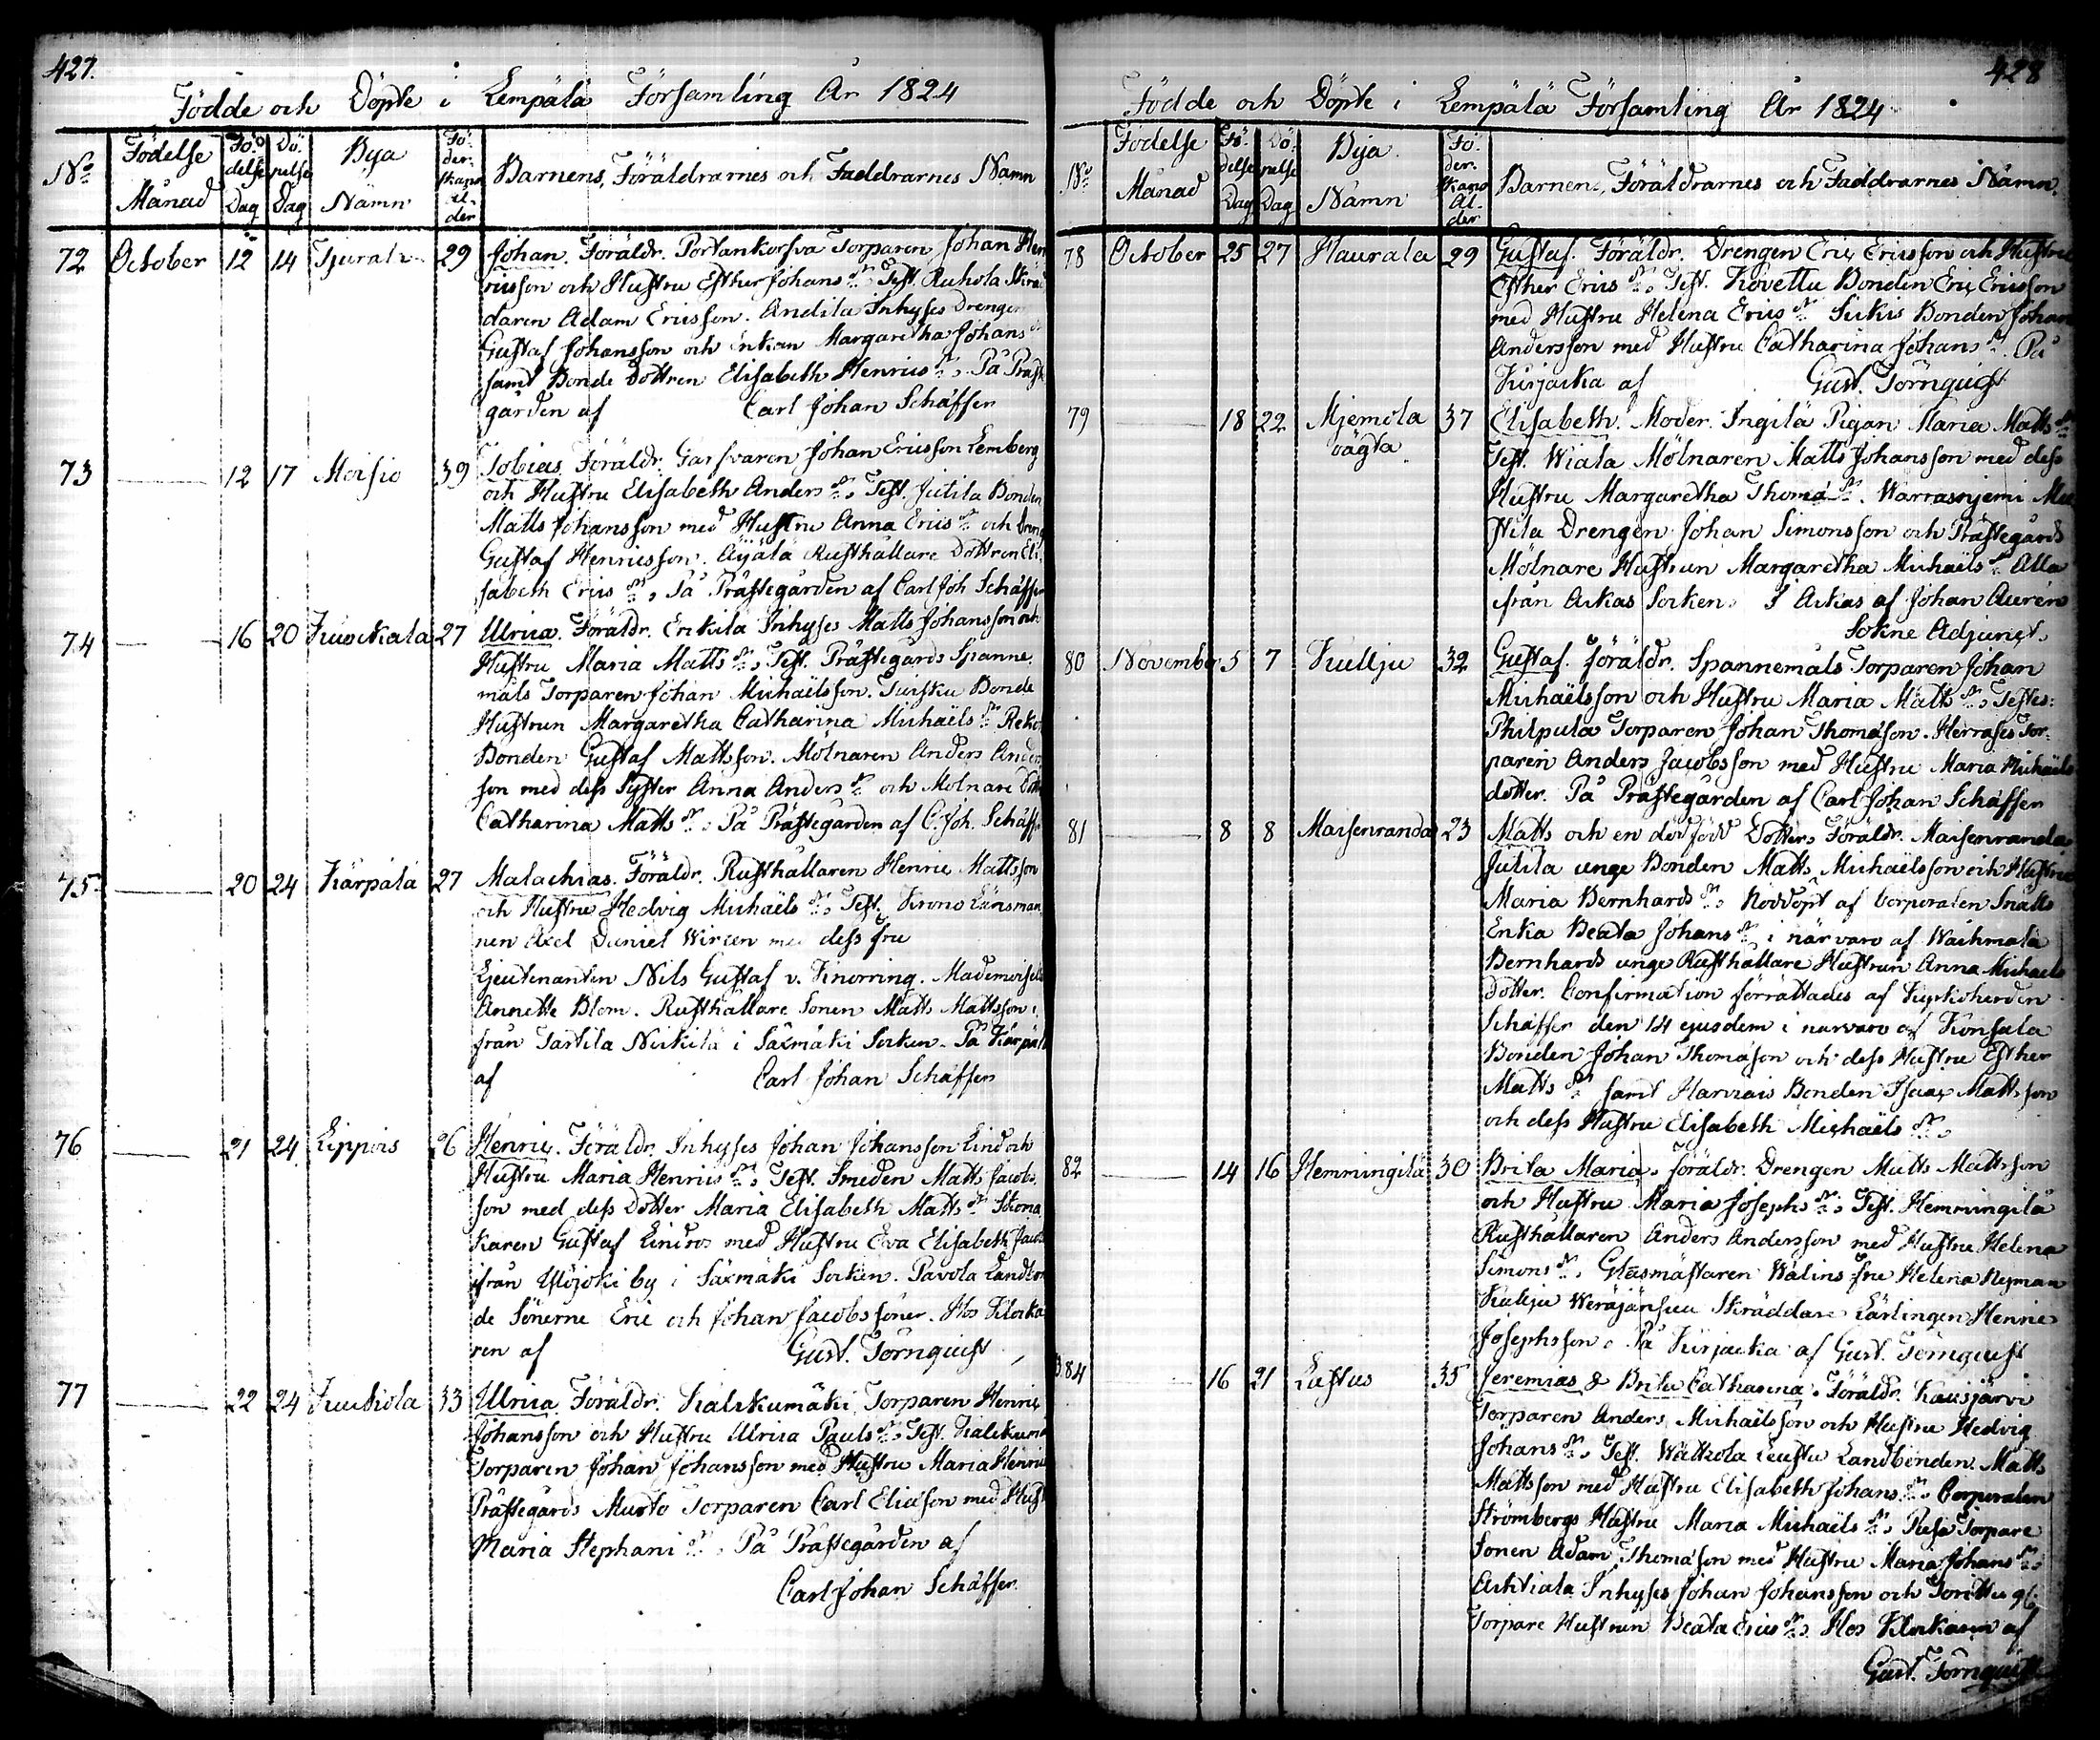 427.
Födde och Döpte i Lempälä Församling År 1824
No Födelse Månad Födelse Dag Döpelse Dag Bya Namn Föderskans Ålder Barnens, Föräldrarnes och Faddrarnes Namn
72 October 12 14 29 Johan. Föräldr. Portankorfva Torparen Johan Hen
ricsson och Hustru Esther Johans dr. Test. Ruhola Skräd
daren Adam Ericsson. Andila Inhyses Drengen
Gustaf Johansson och Enkan Margaretha Johans dr
samt Bonde Dottren Elisabeth Henrics dr. På Präste
gården af Carl Johan Schäffer
73 12 17 Moisio 39 Tobias. Föräldr. Garfvaren Johan Ericsson Lemberg
och Hustru Elisabeth Anders dr. Test. Jutila Bonden
Matts Johansson med Hustru Anna Erics dr och Dreng
Gustaf Henricsson. Äijälä Rusthållare Dottren Eli-
sabeth Erics dr. På Prästegården af Carl Joh Schäffer
74 16 20 Kuockala 27 Ulrica. Föräldr. Erikila Inhyses Matts Johansson och
Hustru Maria Matts dr. Test. Prästegårds Spanne-
måls Torparen Johan Michaëlsson. Turisku Bonde
Hustrun Margaretha Catharina Michaëls dr Reko
Bonden Gustaf Mattsson. Mölnaren Anders Anders
son med dess Syster Anna Anders dr och Mölnare Dott
Catharina Matts dr. På Prästegården af C. Joh. Schäffer
75 20 24 Kärpälä 27 Malachias. Föräldr. Rusthållaren Henric Mattsson
och Hustru Hedvig Michaëls dr. Test. Krono Länsman
nen Axel Daniel Wircen med dess fru
Lieutenanten Nils Gustaf v. Knorring. Mademoiselle
Annette Blom. Rusthållare Sonen Matts Mattsson i
från Tartila Nickilä i Säxmäki Socken. På Kärpälä
af Carl Johan Schäffer
76 21 24 Lippois 26 Henric. Föräldr. Inhyses Johan Johansson Lind och
Hustru Maria Henrics dr. Test. Smeden Matts Jacobs
son med dess Dotter Maria Elisabeth Matts dr Skoma
karen Gustaf Lindros med Hustru Eva Elisabeth Jacobs
ifrån Ylöjoki by i Säxmäki Socken. Pavola Landbon
de Sönerne Eric och Johan Jacobssöner. Hos Klocka
ren af Gust. Törnquist
77 22 24 Kuckola 33 Ulrica Föräldr. Kalckumäki Torparen Henric
Johansson och Hustru Ulrica Pauls dr. Test. Kalckumä
Torparen Johan Johansson med Hustru Maria Henric
Prästegårds Musto Torparen Carl Eliasson med Hust
Maria Stephani dr. På Prästegården af
Carl Johan Schäffer
428
Födde och Döpte i Lempälä Församling År 1824
No Födelse Månad Födelse Dag Döpelse Dag Bya Namn Föderskans Ålder Barnens, Föräldrarnes och Faddrarnes Namn.
78 October 25 27 Haurala 29 Gustaf. Föräldr. Drengen Eric Ericsson och Hustru
Esther Erics dr. Test. Kovettu Bonden Eric Ericsson
med Hustru Helena Erics dr Sukis Bonden Johan
Andersson med Hustru Catharina Johans dr. På
Kurjacka af Gust. Törnquist
79 18 22 Mjemola oägta 37 Elisabeth. Moder. Ingilä Pigan Maria Matts dr
Test. Wiala Mölnaren Matts Johansson med dess
Hustru Margaretha Thomæ dr. Warrasnjemi Mu
stila Drengen Johan Simonsson och Prästegårds
Mölnare Hustrun Margaretha Michaëls dr Alla
ifrån Ackas Socken. I Ackas af Johan Aurén
Sokne Adjunct.
80 November 5 7 Kullju 32 Gustaf. Föräldr. Spannemåls Torparen Johan
Michaëlsson och Hustru Maria Matts dr. Testes:
Philpula Torparen Johan Thomæson. Herrases Tor-
paren Anders Jacobsson med Hustru Maria Michaëls
dotter. På Prästegården af Carl Johan Schäffer
81 8 8 Maisenranda 23 Matts och en död född Dotter. Föräldr. Maisenranda
Jutila unge Bonden Matts Michaëlsson och Hustru
Maria Bernhards dr. Nöddöpt af Corporalen Snälls
Enka Beata Johans dr i närvaro af Waihmala
Bernhards unge Rusthållare Hustrun Anna Michaëls
dotter. Confirmation förrättades af Kyrkoherden
Schäffer den 14 ejusdem i närvaro af Konsala
Bonden Johan Thomæson och dess Hustru Esther
Matts dr samt Harvais Bonden Isaac Mattsson
och dess Hustru Elisabeth Michaëls dr.
82 14 16 Hemmingilä 30 Brita Maria. Föräldr. Drengen Matts Mattsson
och Hustru Maria Josephs dr. Test. Hemmingilä
Rusthållaren Anders Andersson med Hustru Helena
Simons dr. Glasmästaren Wálins fru Helena Nyman
Kulju Skräddare Lärlingen Henric
Josephsson. På Kurjacka af Gust. Törnquist
3.84 16 21 Lastus 35 Jeremias & Brita Catharina. Föräldr. Kausjärvi
Torparen Anders Michaëlsson och Hustru Hedvig
Johans dr. Test. Wätkola Leustu Landbonden Matts
Mattsson med Hustru Elisabeth Johans dr. Corporalen
Strömbergs Hustru Maria Michaëls dr. Torpare
Sonen Adam Thomæson med Hustru Maria Johans dr.
Ahtiala Inhyses Johan Johansson och
Torpare Hustrun Beata Erics dr. Hos Klockaren af
Gust. Törnquist